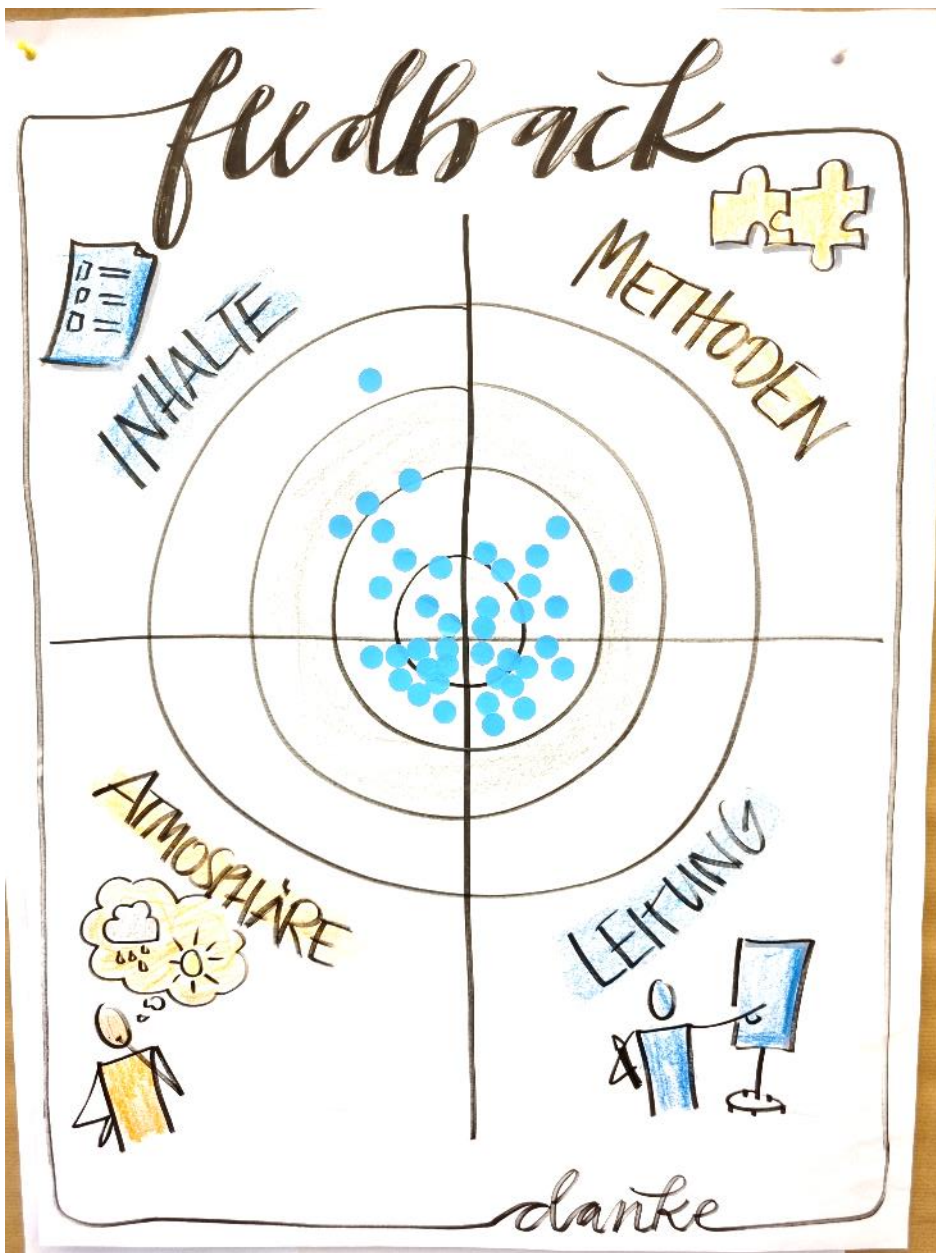 feedback
INHALTE
METHODEN
ATMOSPHÄRE
LEITUNG
danke